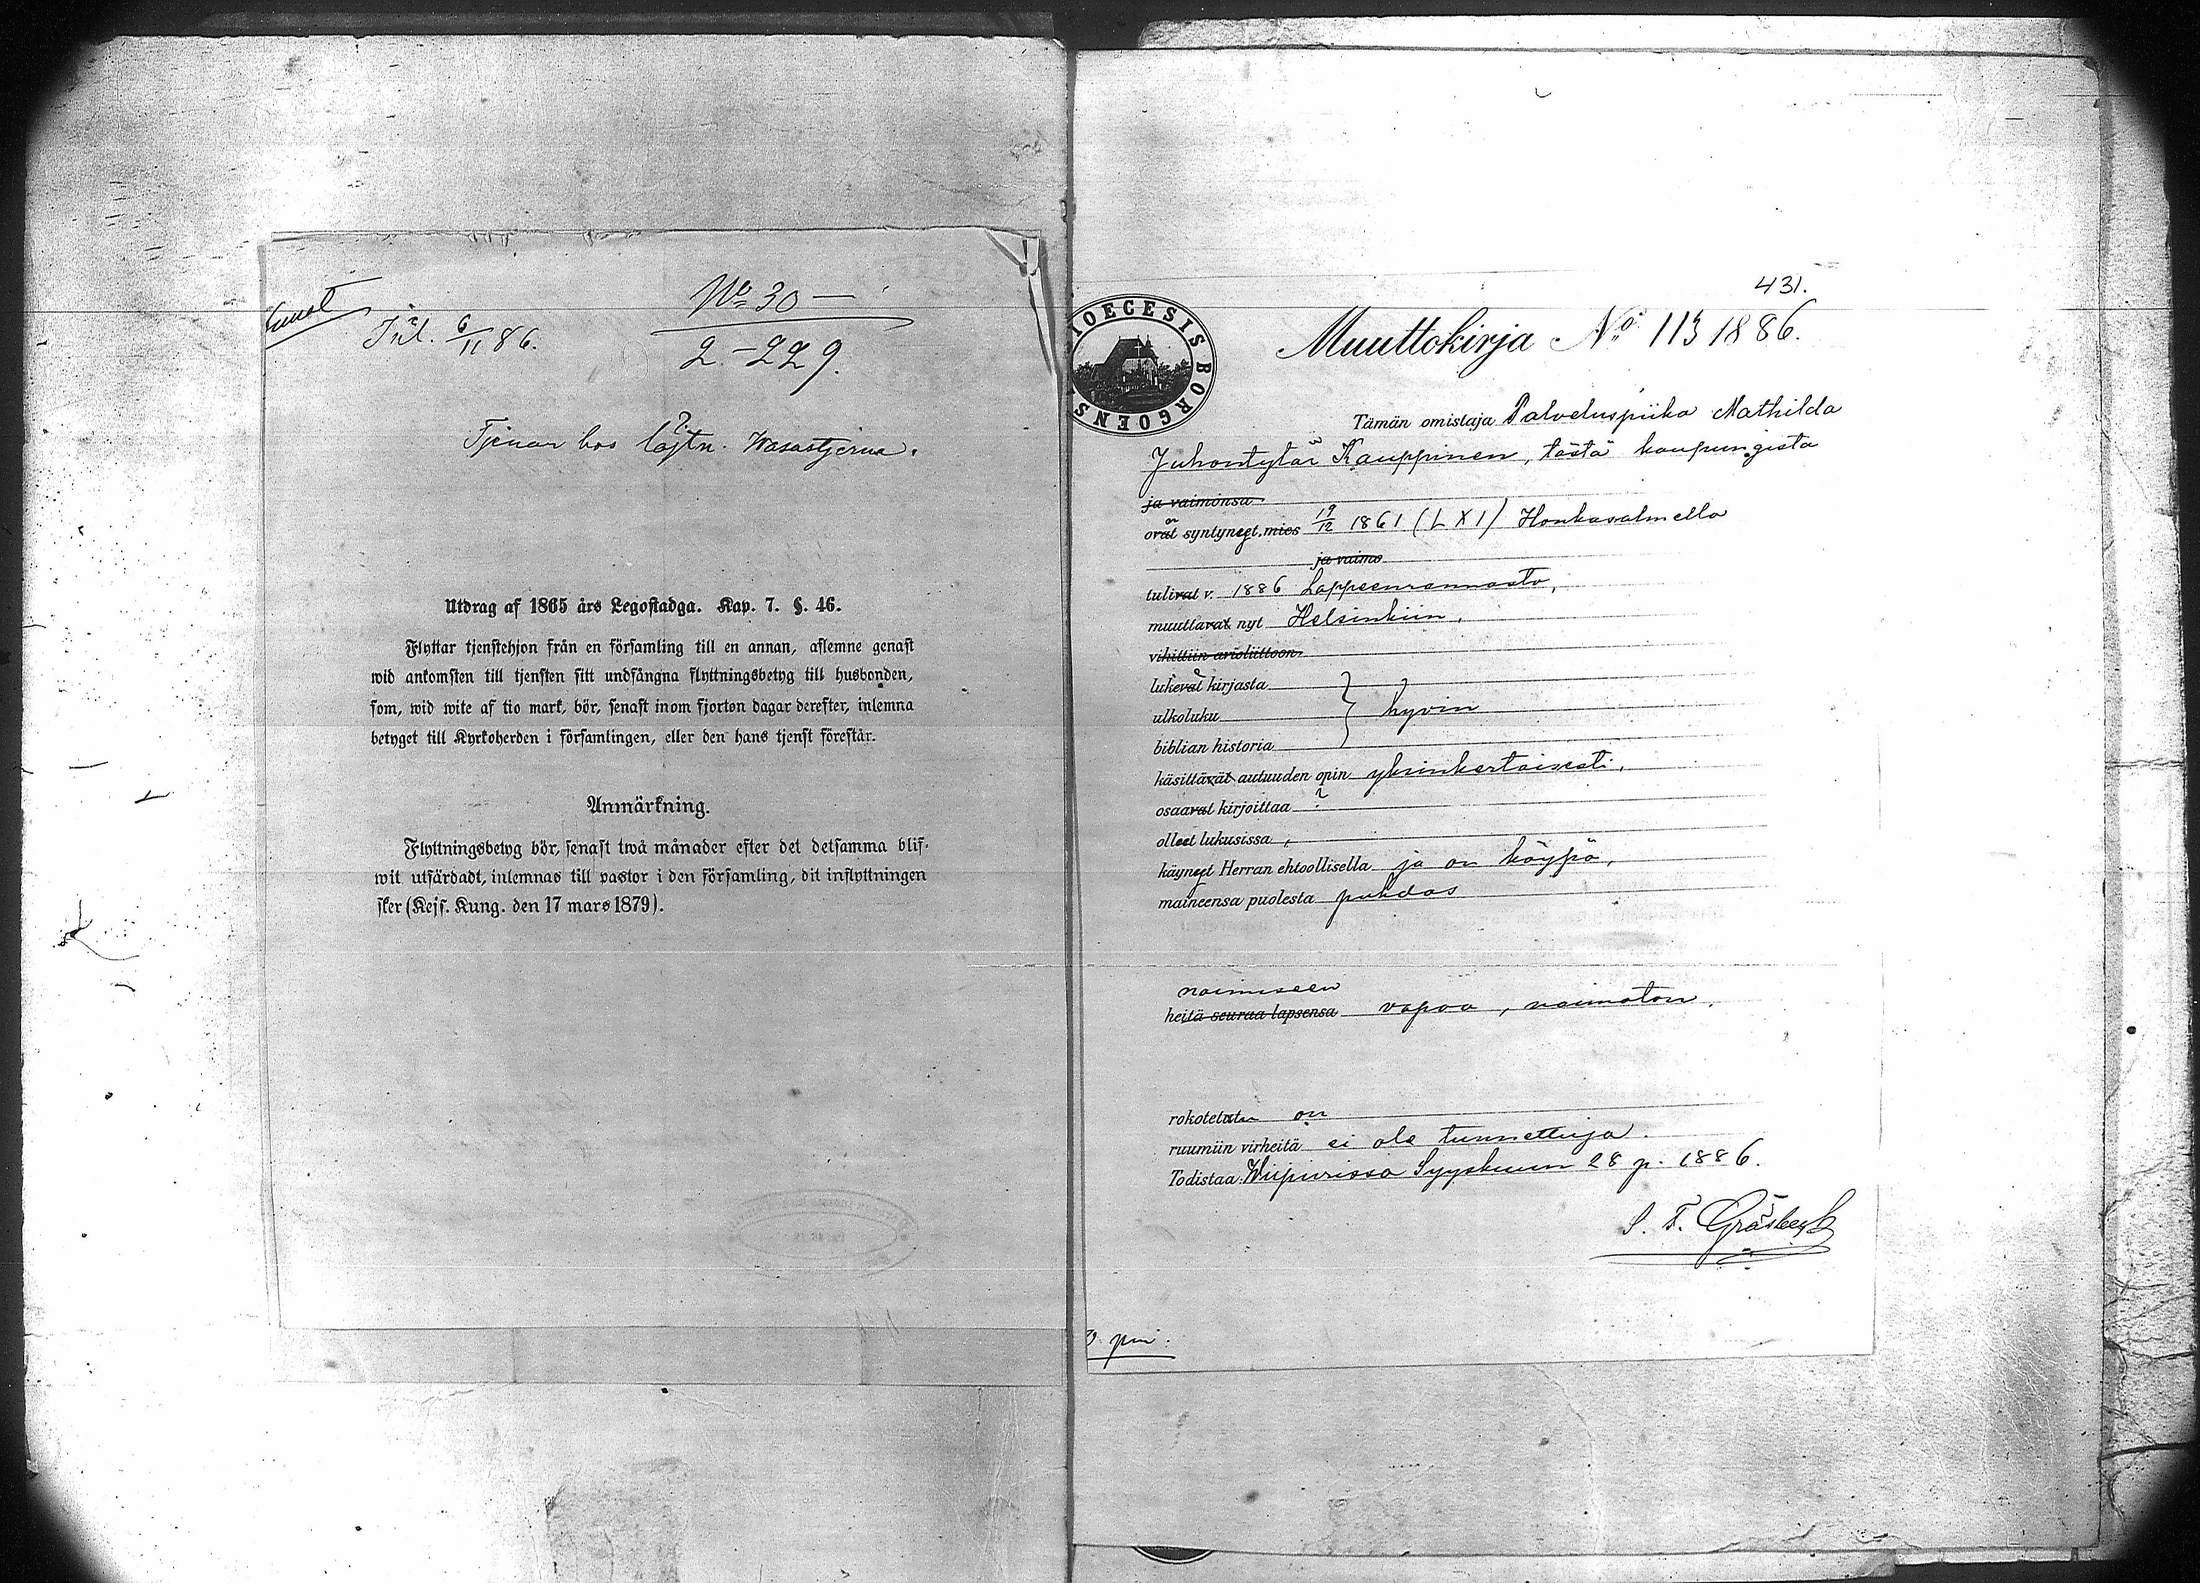 Inl. 6/11 86.
No 30 —
2 - 229.
Tjenar hos löjtn. Wasastjerna.
Utdrag af 1865 års Legostadga. Kap. 7. §. 46.
Flyttar tjenstehjon från en församling till en annan, aflemne genast
wid ankomsten till tjensten sitt undfångna flyttningsbetyg till husbonden,
som, wid wite af tio mark, bör, senast inom fjorton dagar derefter, inlemna
betyget till Kyrkoherden i församlingen, eller den hans tjenst förestår.
Anmärkning.
Flyttningsbetyg bör, senast twå månader efter det detsamma blif-
wit utfärdadt, inlemnas till pastor i den församling, dit inflyttningen
sker (Kejs. Kung. den 17 mars 1879).
431.
DIOECESIS BORGOENSIS
Muuttokirja No 113 1886.
Tämän omistaja Palveluspiika Mathilda
Juhontytär Kauppinen, tästä kaupungista
ja vaimonsa
ovat syntyneet, mies 19/12 1861 (LXI) Honkasalmella
ja vaimo
tulivat v. 1886 Lappeenrannasta,
muuttavat nyt Helsinkiin.
vihittiin avioliittoon
lukevat kirjasta
ulkoluku } hyvin
biblian historia
käsittävät autuuden opin yksinkertaisesti,
osaavat kirjoittaa ?
olleet lukusissa,
käyneet Herran ehtoollisella ja on käypä,
maineensa puolesta puhdas
naimiseen
heitä seuraa lapsensa vapaa, naimaton.
rokotettu on
ruumiin virheitä ei ole tunnettuja.
Todistaa Wiipurissa Syyskuun 28 p. 1886.
S. F. Gräsbeck